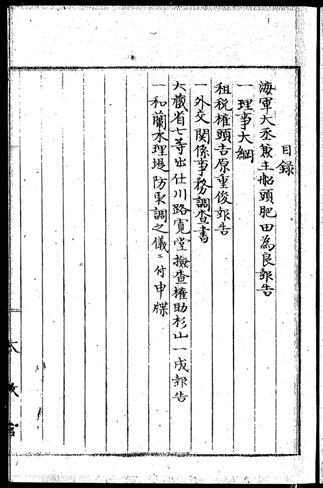 目録
海軍大丞兼主船頭肥田為良報告
一理事大綱
租税権頭吉原重俊報告
一外交関係事務調査書
大蔵省七等出仕川路寛堂検査権助杉山一成報告
一和蘭水理堤防取調之儀ニ付申牒